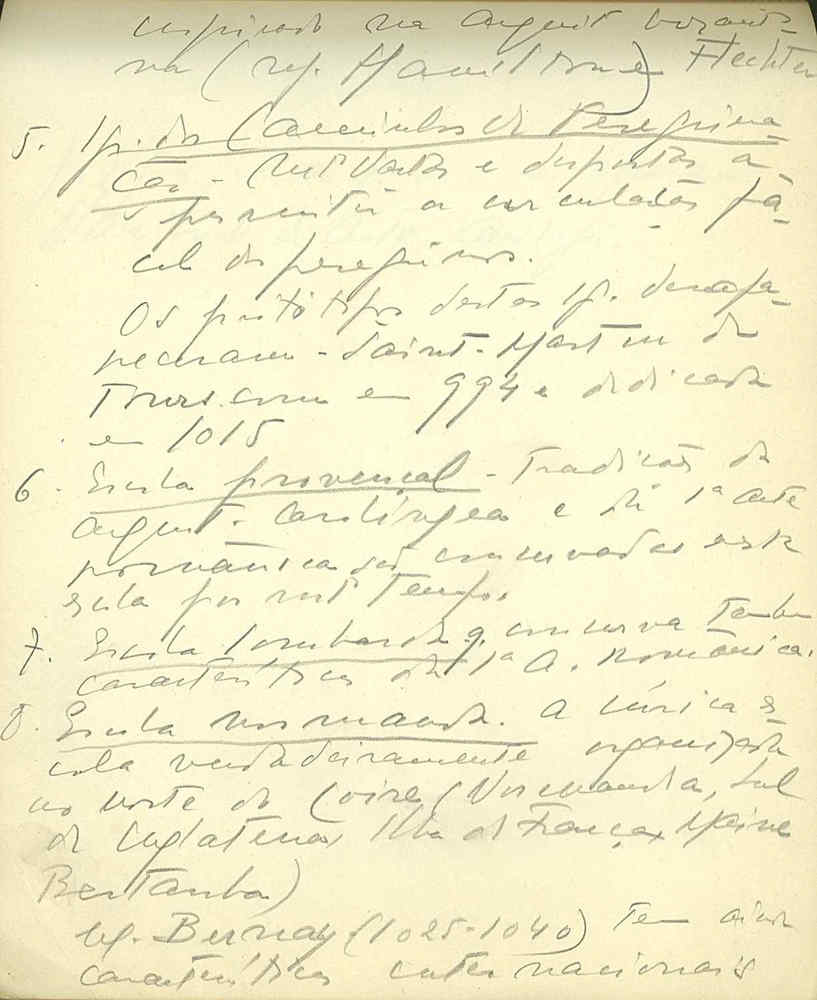 inspirado na arquit. bizanti-
na (ref. Hamilton e Flechter
5. Ig. dos Caminhos de Peregrina-
ção - Mt. Vastas e dispostas a
permitir a circulação fá-
cil dos peregrinos.
Os protótipos destas ig. desapa-
receram - Saint-Martin de
Tours. com. em 994 e dedicada
em 1015
6. Escola provençal - Tradição da
arquit. carolíngea e da 1ª arte
românica são conservadas nesta
escola por mt. tempo.
7. Escola lombarda q. conserva tambem
características da 1ª A. Românica.
8. Escola normanda. A única es-
cola verdadeiramente organizada
no norte do Loire (Normandia, Sul
de Inglaterra, Ilha de França, Maine
Bertanha)
Ig. Bernay (1025-1040) tem ainda
características internacionais